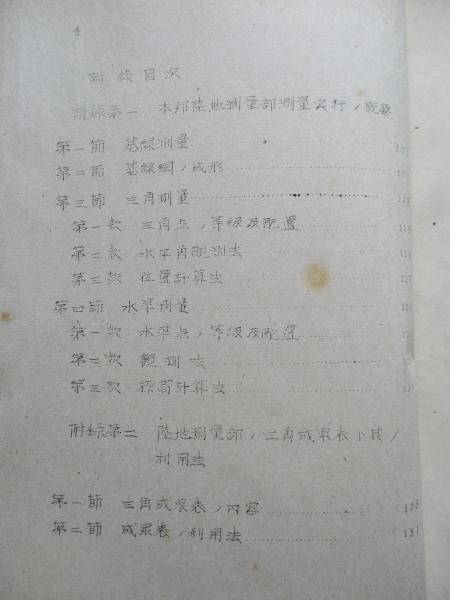 4
附錄目次
附錄第一 本邦陸地測量部測量実行ノ概要
第一節 基線測量
第二節 基線網ノ成形
第三節 三角測量
第一款 三角点ノ等級及配置
第二款 水平角観測法
第三款 位置計算法
第四節 水準測量
第一款 水準点ノ等級及配置
第二款 観測法
第三款 標高計算法
附錄第二 陸地測量部ノ三角成果表ト其ノ
利用法
第一節 三角成果表ノ内容
第二節 成果表ノ利用法